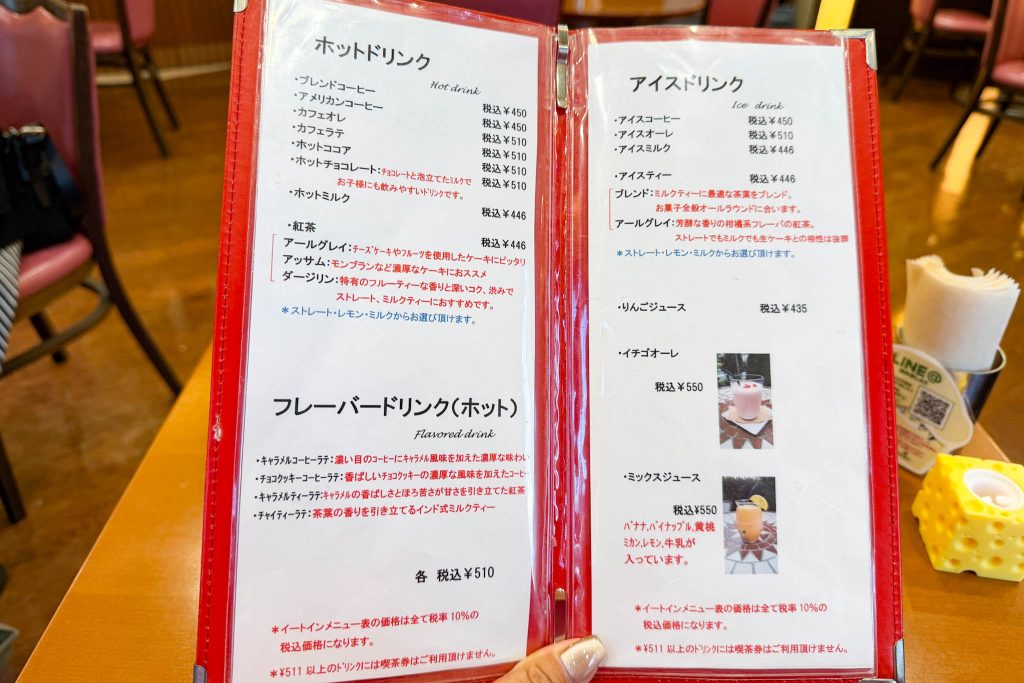 ホットドリンク
Hot drink
・ブレンドコーヒー 税込¥450
・アメリカンコーヒー 税込¥450
・カフェオレ 税込¥510
・カフェラテ 税込¥510
・ホットココア 税込¥510
・ホットチョコレート:チョコレートと泡立てたミルクで 税込¥510
お子様にも飲みやすいドリンクです。
・ホットミルク 税込¥446
・紅茶 税込¥446
アールグレイ:チーズケーキやフルーツを使用したケーキにピッタリ
アッサム:モンブランなど濃厚なケーキにおススメ
ダージリン:特有のフルーティーな香りと深いコク、渋みで
ストレート、ミルクティーにおすすめです。
*ストレート・レモン・ミルクからお選び頂けます。
フレーバードリンク(ホット)
Flavored drink
・キャラメルコーヒーラテ:濃い目のコーヒーにキャラメル風味を加えた濃厚な味わい
・チョコクッキーコーヒーラテ:香ばしいチョコクッキーの濃厚な風味を加えたコーヒー
・キャラメルティーラテ:キャラメルの香ばしさとほろ苦さが甘さを引き立てた紅茶
・チャイティーラテ:茶葉の香りを引き立てるインド式ミルクティー
各 税込¥510
*イートインメニュー表の価格は全て税率10%の
税込価格になります。
*¥511以上のドリンクには喫茶券はご利用頂けません。
アイスドリンク
Ice drink
・アイスコーヒー 税込¥450
・アイスオーレ 税込¥510
・アイスミルク 税込¥446
・アイスティー 税込¥446
ブレンド:ミルクティーに最適な茶葉をブレンド。
お菓子全般オールラウンドに合います。
アールグレイ:芳醇な香りの柑橘系フレーバの紅茶。
ストレートでもミルクでも生ケーキとの相性は抜群
*ストレート・レモン・ミルクからお選び頂けます。
・りんごジュース 税込¥435
・イチゴオーレ
税込¥550
・ミックスジュース
税込¥550
バナナ,パイナップル,黄桃
ミカン,レモン,牛乳が
入っています。
*イートインメニュー表の価格は全て税率10%の
税込価格になります。
*¥511以上のドリンクには喫茶券はご利用頂けません。
LINE@